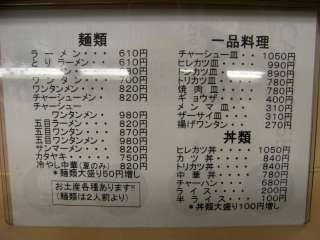 麺類
ラーメン・・・ 610円
とりラーメン・・ 610円
ワンタン・・・ 700円
ワンタンメン・・ 820円
チャーシューメン・ 820円
チャーシュー
ワンタンメン・・ 980円
五目ラーメン・・ 820円
五目ワンタン・・ 870円
五目ワンタンメン・ 980円
サンマーメン・・ 820円
カタヤキ・・・ 750円
冷やし中華(夏のみ) 820円
*麺類大盛り50円増し
お土産各種あります!!
(麺類は2人前より)
一品料理
チャーシュー皿・・ 1050円
ヒレカツ皿・・・ 990円
トリカツ皿・・・ 890円
焼肉皿・・・ 780円
ギョウザ・・・ 400円
メンマ皿・・・ 310円
ザーサイ皿・・・ 310円
揚げワンタン・・ 270円
丼類
ヒレカツ丼・・・ 1050円
カツ丼・・・ 840円
トリカツ丼・・・ 840円
中華丼・・・ 740円
チャーハン・・・ 680円
ライス・・・ 200円
半ライス・・・ 100円
*丼類大盛り100円増し